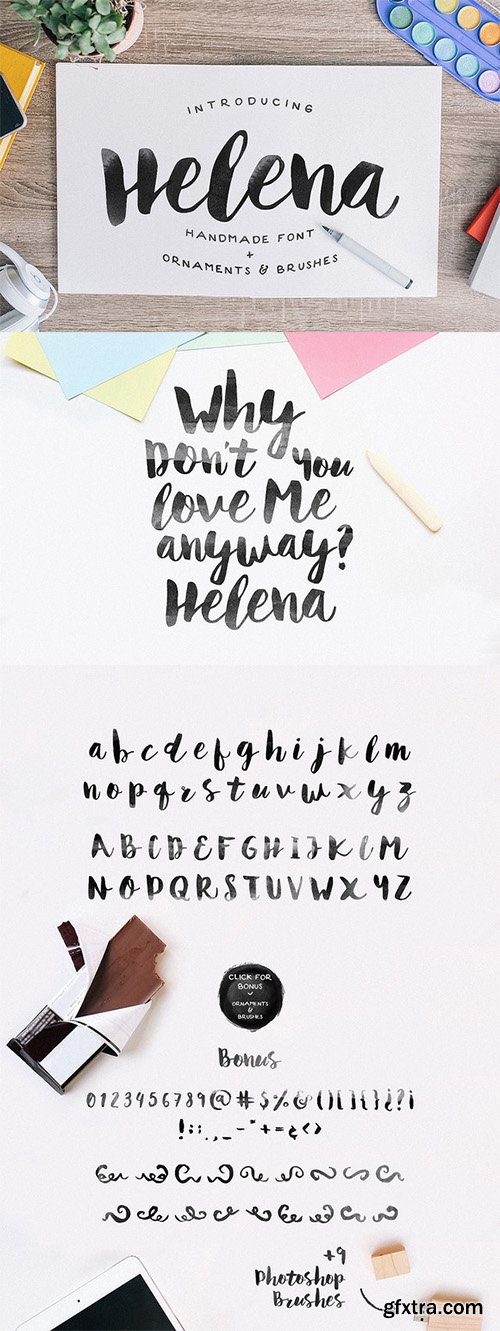 INTRODUCING
Helena
HANDMADE FONT
+
ORNAMENTS & BRUSHES
Why
Don't you
love Me
anyway?
Helena
a b c d e f g h i j k l m
n o p q r s t u v w x y z
A B C D E F G H I J K L M
N O P Q R S T U V W X Y Z
CLICK FOR
BONUS
ORNAMENTS
& BRUSHES
Bonus
0 1 2 3 4 5 6 7 8 9 @ # $ % & ( ) [ ] { } ¿ ? ¡
! : ; . , _ - " + = < >
+9
Photoshop
Brushes
gfxtra.com